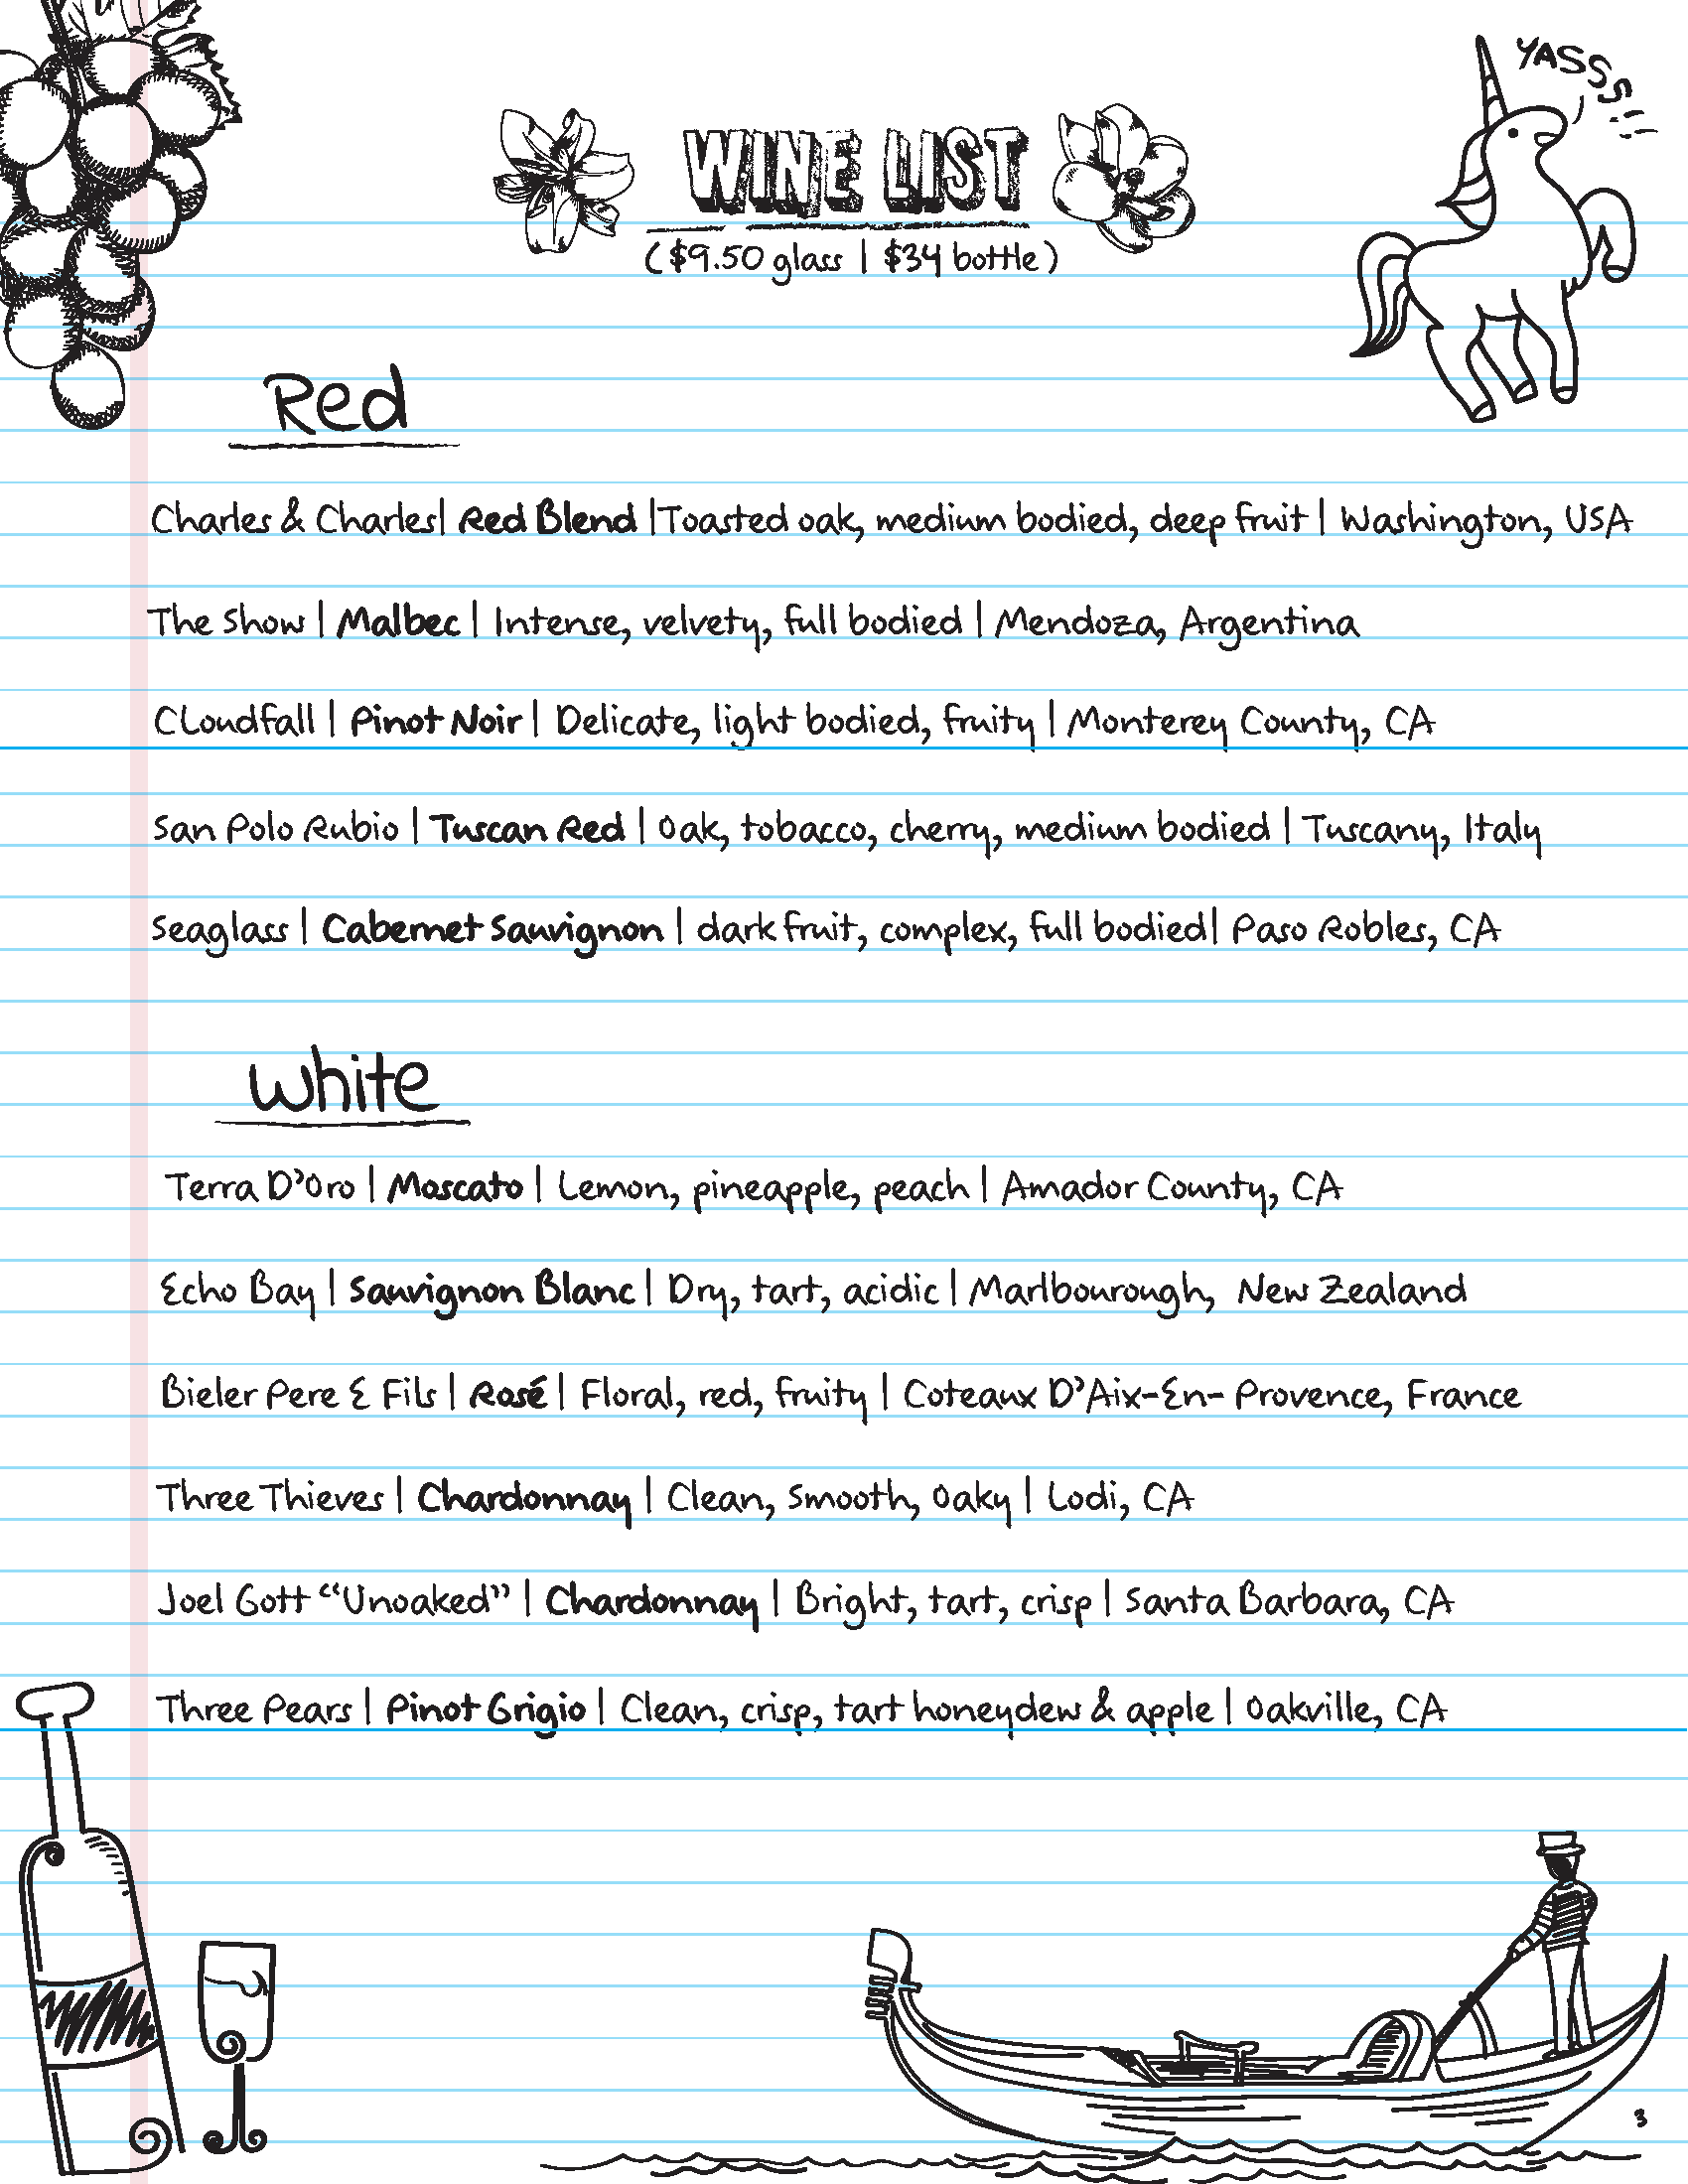 YASSS!
WINE LIST
($9.50 glass | $34 bottle)
Red
Charles & Charles| Red Blend |Toasted oak, medium bodied, deep fruit | Washington, USA
The Show | Malbec | Intense, velvety, full bodied | Mendoza, Argentina
CLoudfall | Pinot Noir | Delicate, light bodied, fruity | Monterey County, CA
San Polo Rubio | Tuscan Red | Oak, tobacco, cherry, medium bodied | Tuscany, Italy
Seaglass | Cabernet Sauvignon | dark fruit, complex, full bodied| Paso Robles, CA
White
Terra D'Oro | Moscato | Lemon, pineapple, peach | Amador County, CA
Echo Bay | Sauvignon Blanc | Dry, tart, acidic | Marlbourough, New Zealand
Bieler Pere & Fils | Rosé | Floral, red, fruity | Coteaux D'Aix-En- Provence, France
Three Thieves | Chardonnay | Clean, Smooth, Oaky | Lodi, CA
Joel Gott “Unoaked” | Chardonnay | Bright, tart, crisp | Santa Barbara, CA
Three Pears | Pinot Grigio | Clean, crisp, tart honeydew & apple | Oakville, CA
3